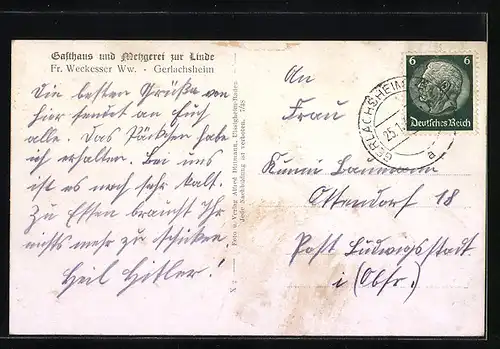 Gasthaus und Metzgerei zur Linde
Fr. Weckesser Ww. - Gerlachsheim
Die besten Grüße von
hier sendet an Euch
alle. Das Päckchen habe
ich erhalten. Bei uns
ist es noch sehr kalt.
Zu Essen braucht Ihr
nichts mehr zu schicken
Heil Hitler!
Foto u. Verlag Alfred Hitmann, Uissigheim-Baden
Jede Nachbildung ist verboten. 7/38
An
Frau
Kunni Baumann
Ottendorf 18
Post Ludwigsstadt
i (Obfr.)
6 6
Deutsches Reich
GERLACHSHEIM
25.1
a